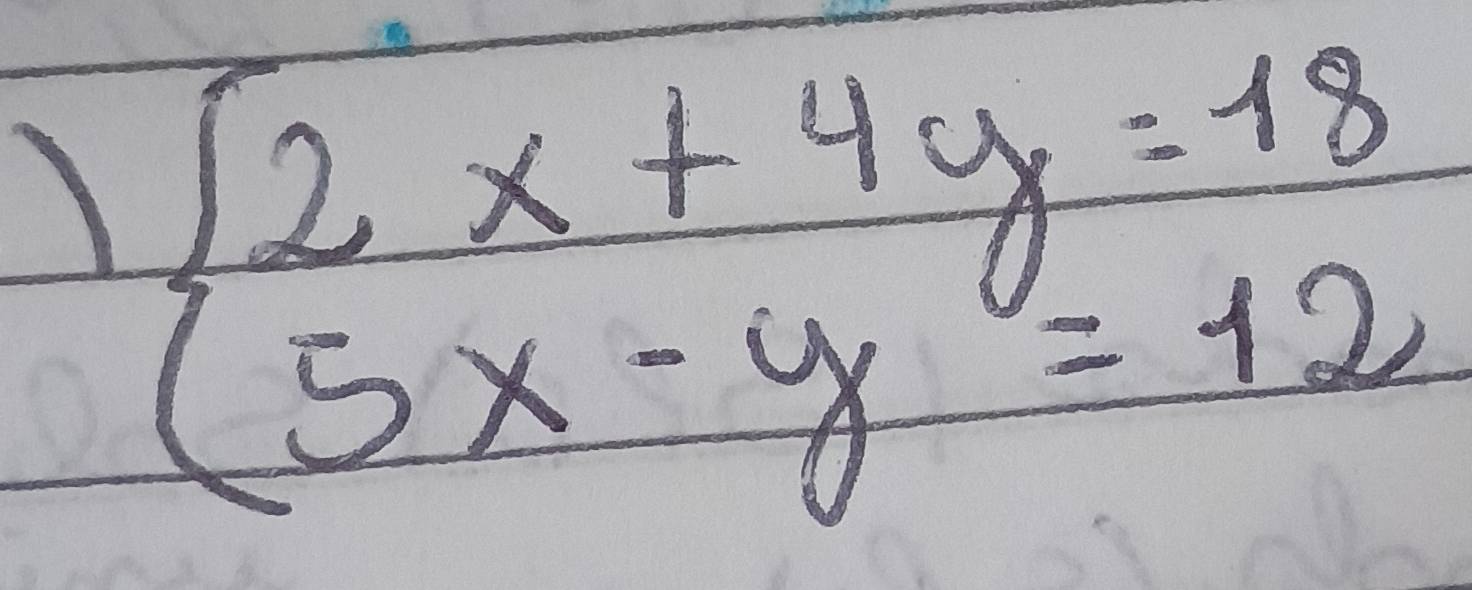 ) { 2x + 4y = 18
5x - y = 12